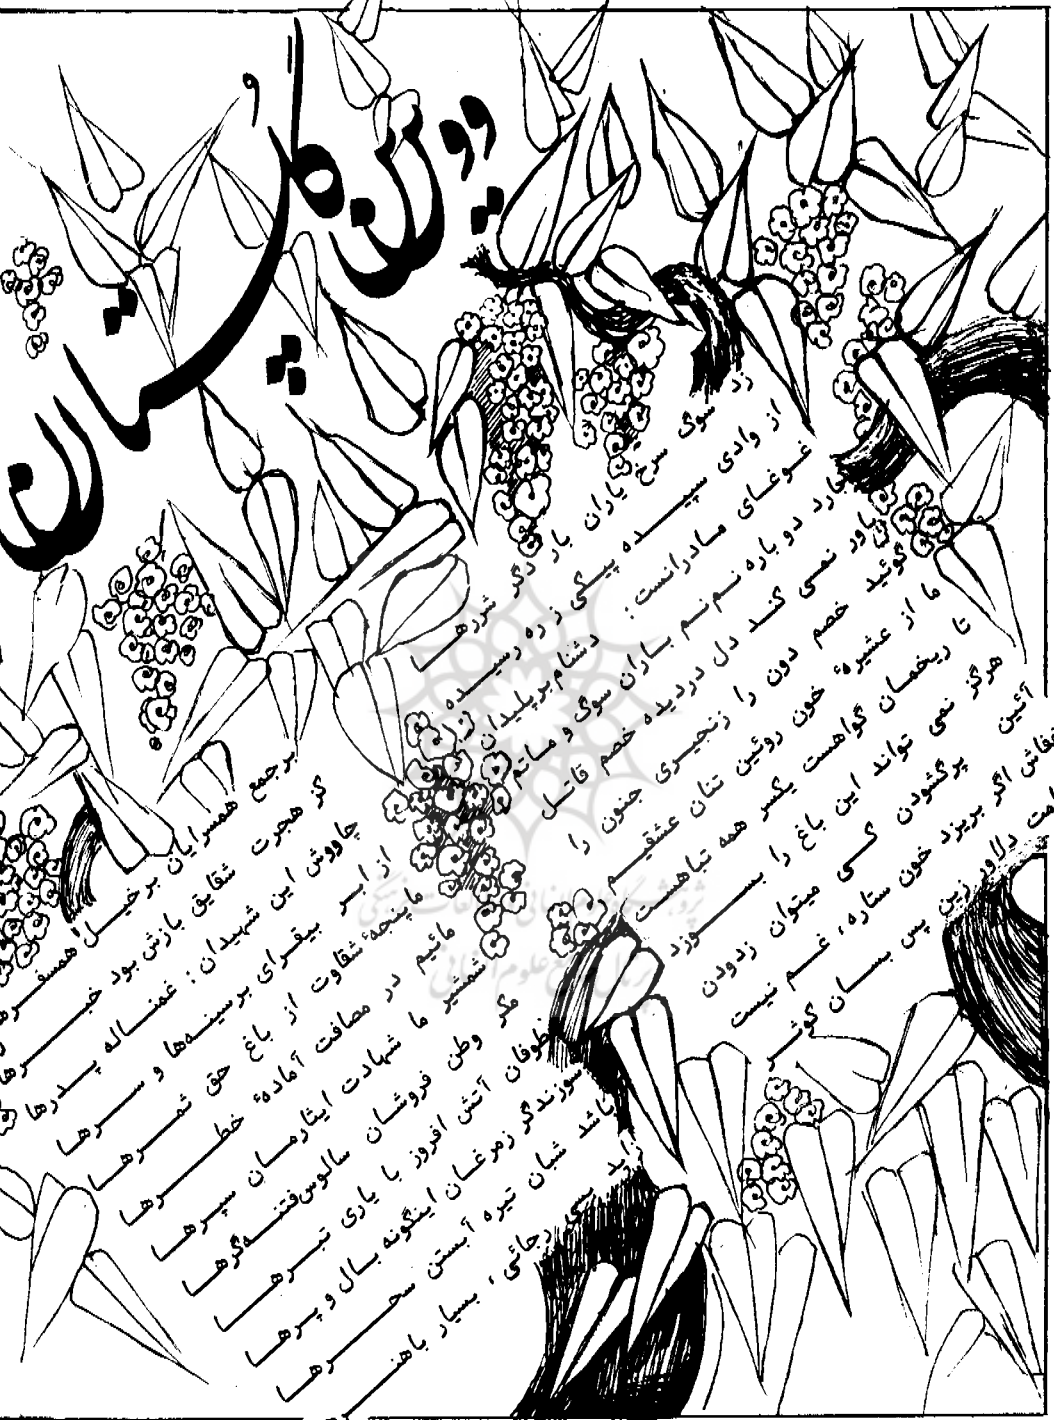 زد سوگ سرخ یاران بار دگر شررها
از وادی سپیده پیکی ز ره رسیده
غوغای مادرانست: دشنام بر پلیدان
بارد دوباره نم نم باران سوگ و ماتم
باور نمی کند دل دردیده خصم قاتل
گوئید خصم دون را زنجیری جنون را
ما از عشیرهٔ خون روئین تنان عشقیم
تا ریخمان گواهست یکسر همه تباهست
هرگز نمی تواند این باغ را بسوزد
آئین پرگشودن کی میتوان زدودن
خفاش اگر بریزد خون ستاره، غم نیست
دلاور زین پس بسان کوثر
بر جمع همسرایان بر خیل همسفرها
کز هجرت شقایق بازش بود خبرها
چاووش این شهیدان: غمناله پدرها
از ابر بیقرای بر سینه‌ها و سرها
ما پنجهٔ شقاوت از باغ حق ثمرها
مائیم در مصافت آمادهٔ خطرها
شمشیر ما شهادت ایثارمان سپرها
مکر وطن فروشان سالوس فتنه‌گرها
طوفان آتش افروز با یاری تبرها
سوزند گر ز مرغان اینگونه بال و پرها
باشد شبان تیره آبستن سحرها
زاید بسی رجائی، بسیار باهنر